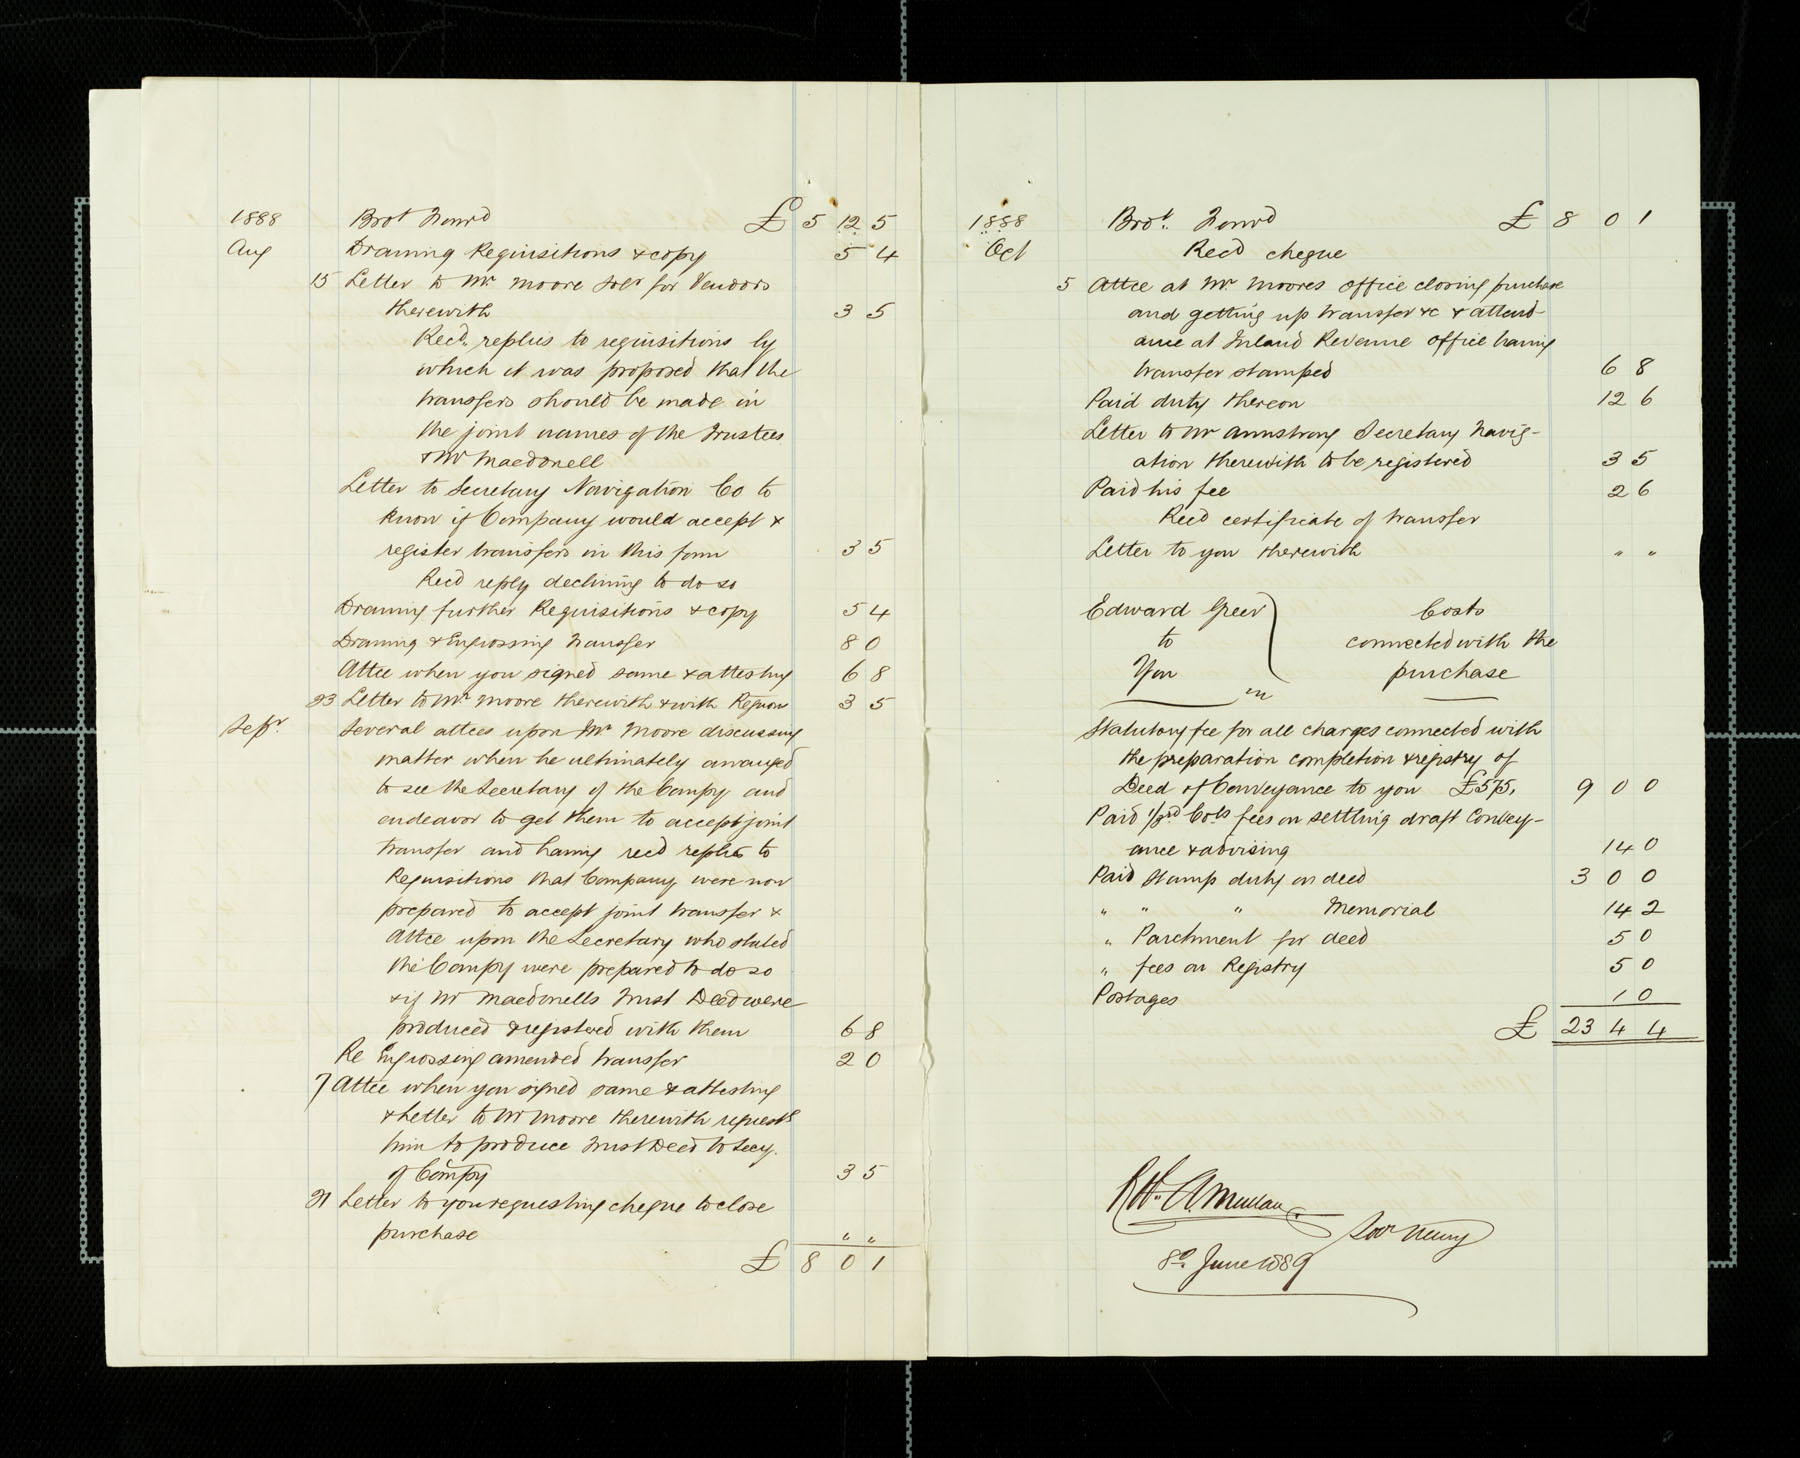 1888 Brot Forwd £ 5 12 5
Aug Drawing Requisitions & copy 5 4
15 Letter to Mr Moore Solr for Vendors
therewith 3 5
Recd. replies to requisitions by
which it was proposed that the
transfers should be made in
the joint names of the Trustees
& Mr Macdonell
Letter to Secretary Navigation Co to
know if Company would accept &
register transfers in this form 3 5
Recd reply declining to do so
Drawing further Requisitions & copy 5 4
Drawing & Engrossing Transfer 8 0
Attce when you signed same & attesting 6 8
23 Letter to Mr Moore therewith & with Requons 3 5
Sepr. Several attces upon Mr Moore discussing
matter when he ultimately arranged
to see the Secretary of the Compy and
endeavor to get them to accept joint
transfer and having recd replies to
Requisitions that Company were now
prepared to accept joint transfer &
Attce upon the Secretary who stated
the Compy were prepared to do so
& if Mr Macdonells Trust Deed were
produced & registered with them 6 8
Re Engrossing amended transfer 2 0
7 Attce when you signed same & attesting
& Letter to Mr Moore therewith requestg
him to produce Trust Deed to Secy.
of Compy 3 5
21 Letter to you requesting cheque to close
purchase " "
£ 8 0 1
1888 Brot. Forwd £ 8 0 1
Oct Recd cheque
5 Attce at Mr Moores office closing purchase
and getting up transfer &c & attend-
ance at Inland Revenue office having
transfer stamped 6 8
Paid duty thereon 12 6
Letter to Mr Armstrong Secretary Navig-
ation therewith to be registered 3 5
Paid his fee 2 6
Recd certificate of transfer
Letter to you therewith " "
Edward Greer Costs
to connected with the
You purchase
Statutory fee for all charges connected with
the preparation completion & registry of
Deed of Conveyance to you £575. 9 0 0
Paid 1/3rd Cols fees on settling draft Convey-
ance & advising 14 0
Paid Stamp duty on deed 3 0 0
" " " Memorial 14 2
" Parchment for deed 5 0
" fees on Registry 5 0
Postages 1 0
£ 23 4 4
A. Mullan
Solr Newry
8th. June 1889